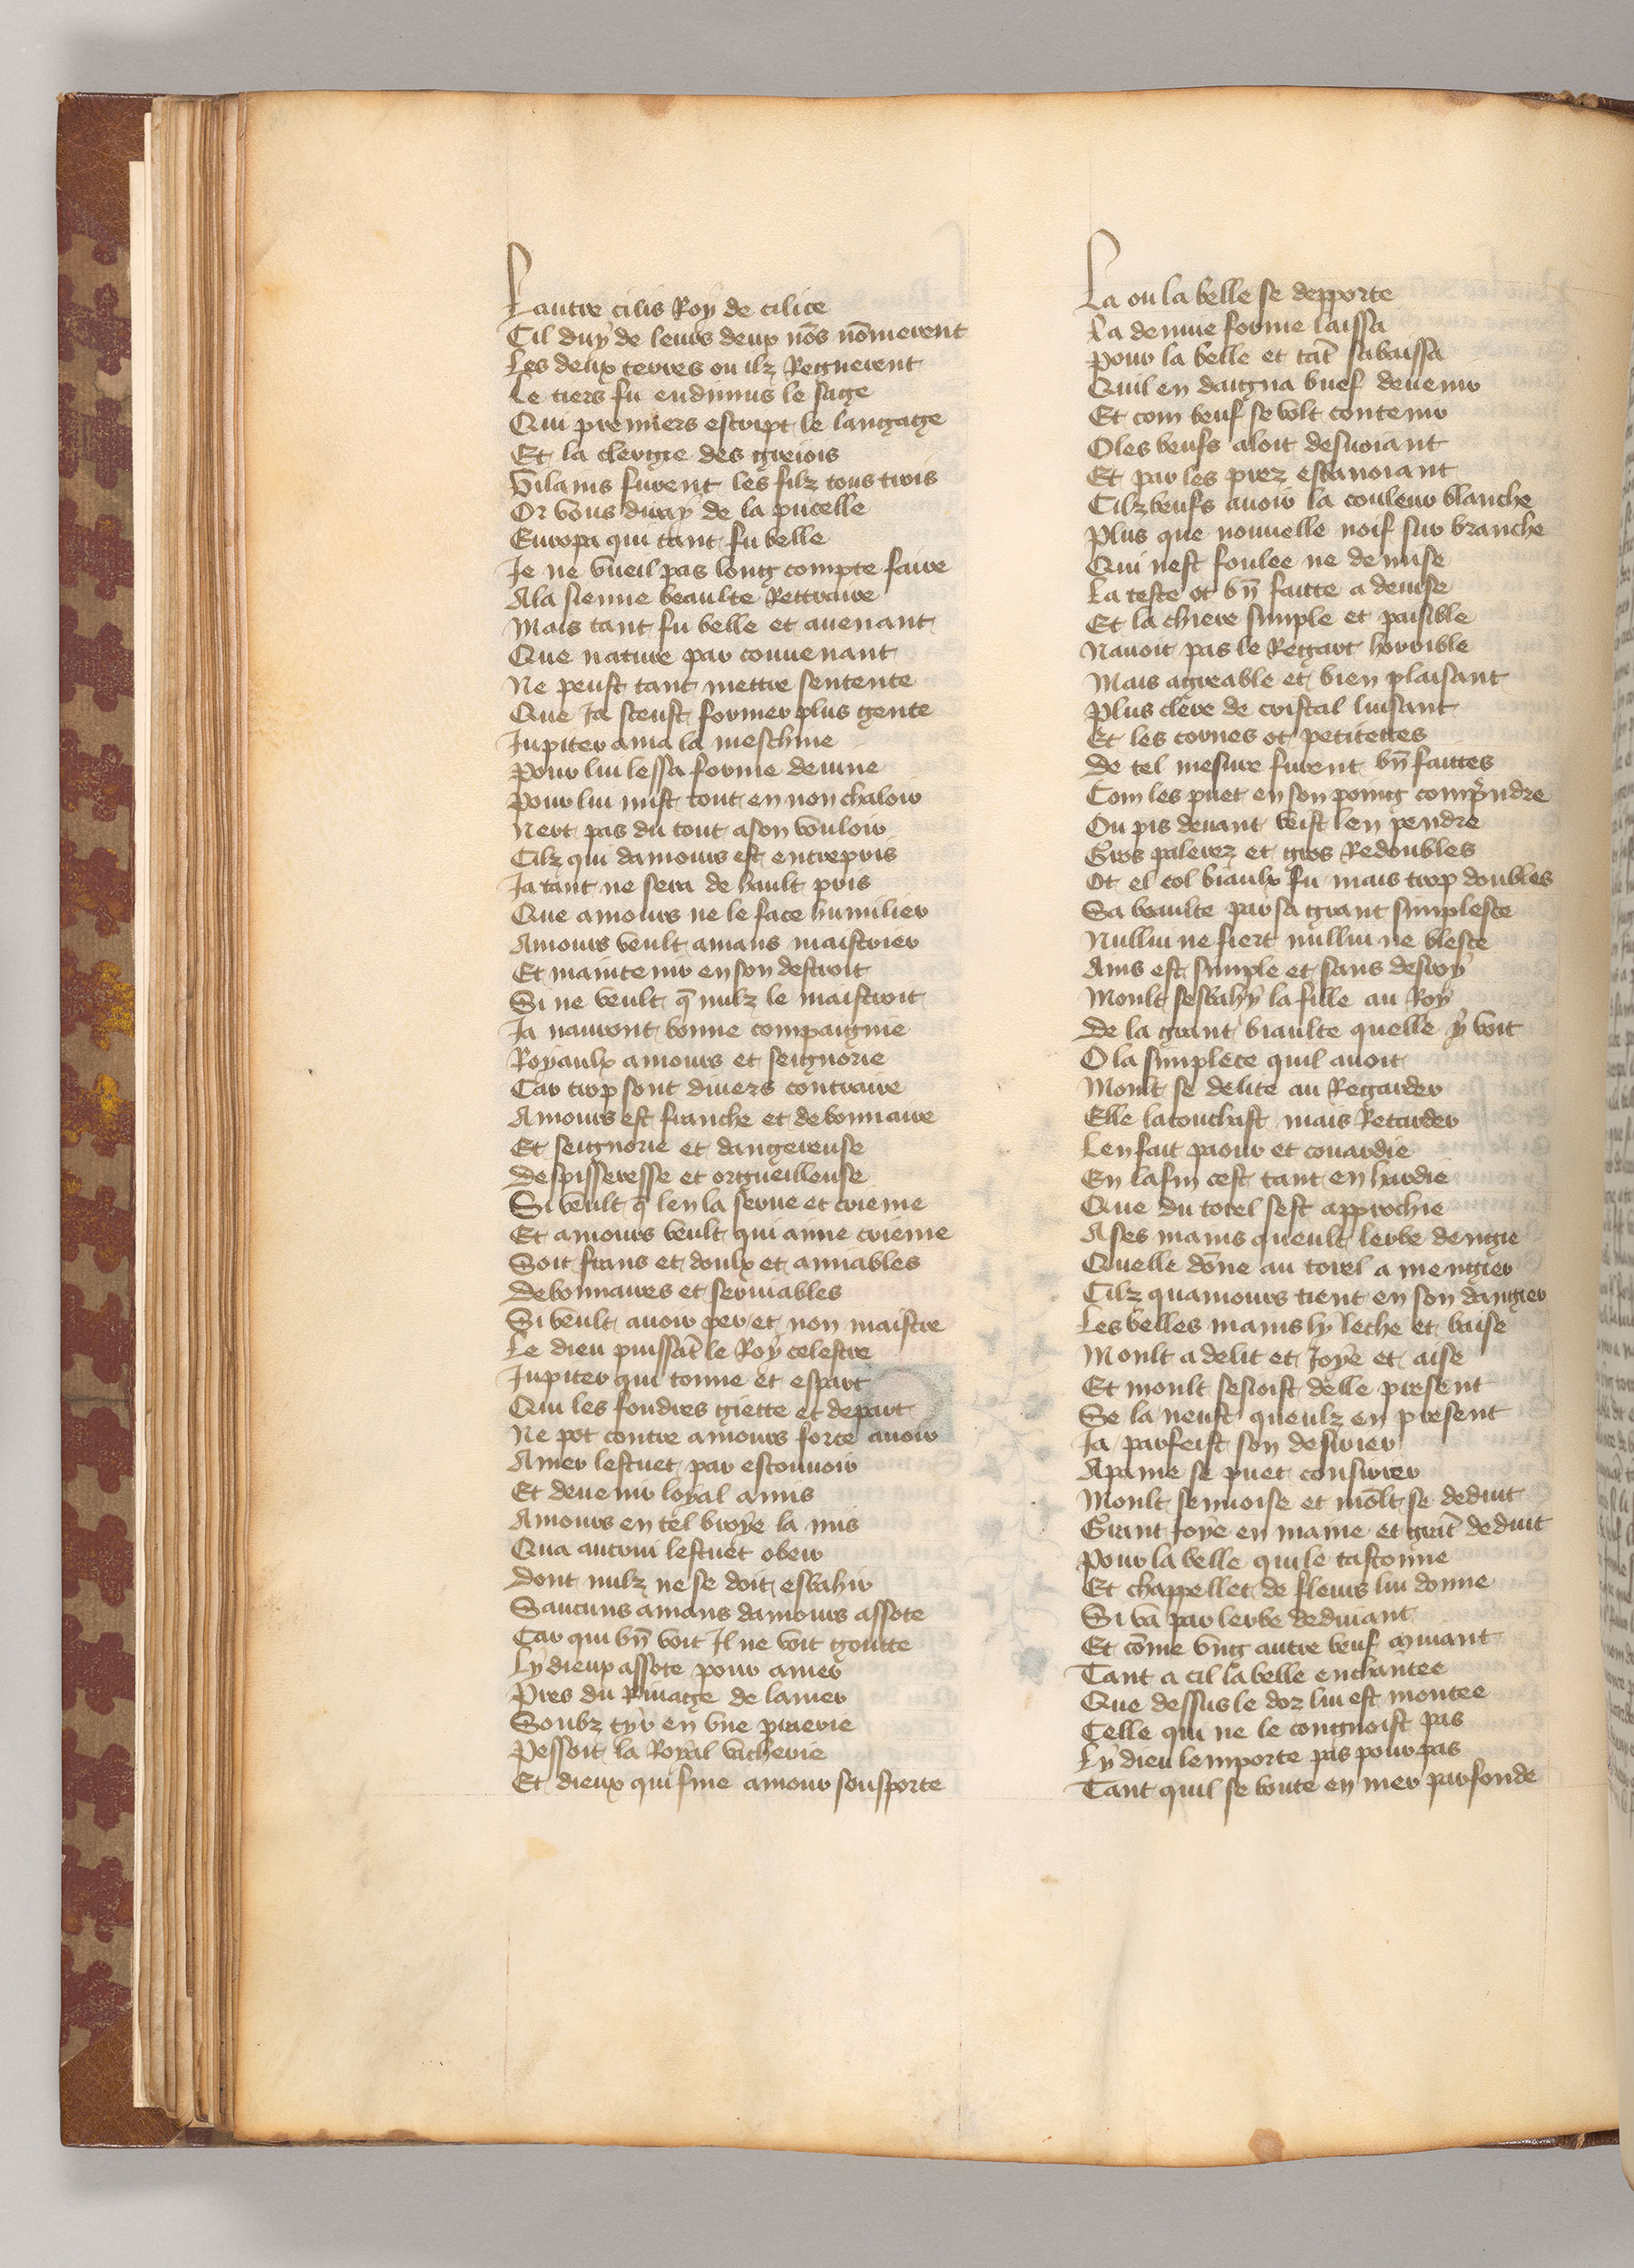 Lautre cilis Roy de cilice
Cil duy de leurs deux nõs nõmerent
Les deux terres ou ilz Regnerent
Le tiers fu endimus le sage
Qui premiers escript le langage
Et la clergie des greiois
Vilains furent les filz tous trois
Or vous diray de la pucelle
Europa qui tant fu belle
Je ne vueil pas long compte faire
Ala sienne beaulte Rettraire
Mais tant fu belle et auenant
Que nature par conuenant
Ne peust tant mettre sentente
Que Ja sceust former plus gente
Jupiter ama la meschine
Pour lui lessa forme deuine
Pour lui mist tout en non chaloir
Nert pas du tout ason vouloir
Cilz qui damours est entrepris
Ja tant ne sera de hault pris
Que amours ne le face humilier
Amours veult amans maistrier
Et maintenir en son destroit
Si ne veult q̃ nulz le maistroit
Ja nauront bonne compaignie
Royaulx amours et seignorie
Car trop sont diuers contraire
Amours est franche et debonnaire
Et seignorie et dangereuse
Despisseresse et orgueilleuse
Si veult q̃ len la serue et crieme
Et amours veult qui aime crieme
Soit frans et doulx et amiables
Debonnaires et seruiables
Si veult auoir per et non maistre
Le dieu puissãt le Roy celestre
Jupiter qui tonne et espart
Qui les fondres giette et depart
Ne pot contre amours force auoir
Amer lestuet par estouuoir
Et deuenir loyal amis
Amours en tel broye la mis
Qua autrui lestuet obeir
Dont nulz ne se doit esbahir
Saucuns amans damours assote
Car qui bñ voit Il ne voit goutte
Ly dieux assote pour amer
Pres du Riuage de lamer
Soubz tyr en vne praerie
Pessoit la Royal vacherie
Et dieux qui fine amour sousporte
La ou la belle se depporte
La deuine forme laissa
Pour la belle et tãt sabaissa
Quil en daigna buef deuenir
Et com beuf se volt contenir
Oles beufs aloit desuoiant
Et par les prez esbanoiant
Cilz beufs auoir la couleur blanche
Plus que nouuelle noif sur branche
Qui nest foulee ne demise
La teste ot bñ faitte a deuise
Et la chiere simple et paisible
Nauoit pas le Regart horrible
Mais agreable et bien plaisant
Plus clere de cristal luisant
Et les cornes ot petitettes
De tel mesure furent bñ faittes
Com les puet en son poing comprendre
Ou pis deuant veist len pendre
Gros palerez et gros Redoubles
Ot el col biaulx fu mais trop doubles
Sa beaulte par sa grant simplesce
Nullui ne fiert nullui ne blesce
Ains est simple et sans desroy
Moult sesbahy la fille au Roy
De la grant biaulte quelle y voit
O la simplece quil auoit
Moult se delite au Regarder
Elle latouchast mais Retarder
Len fait paour et couardie
En lafin cest tant en hardie
Que du torel sest approchie
Ases mains queult lerbe dengie
Quelle dõne au torel a mengier
Cilz quamours tient en son dangier
Les belles mains ly leche et baise
Moult a delit et Joye et aise
Et moult sesioist delle present
Se la neust queulz en present
Ja parfeist son desirier
Apaine se puet consirrer
Moult senuoise et mõlt se deduit
Grant Joye en maine et grãt deduit
Pour la belle qui le tastonne
Et chappellet de fleurs lui donne
Si va par lerbe deduiant
Et cõme vng autre beuf muiant
Tant a cil la belle enchantee
Que dessus le doz lui est montee
Celle qui ne le congnoist pas
Ly dieu lemporte pas pour pas
Tant quil se boute en mer parfonde